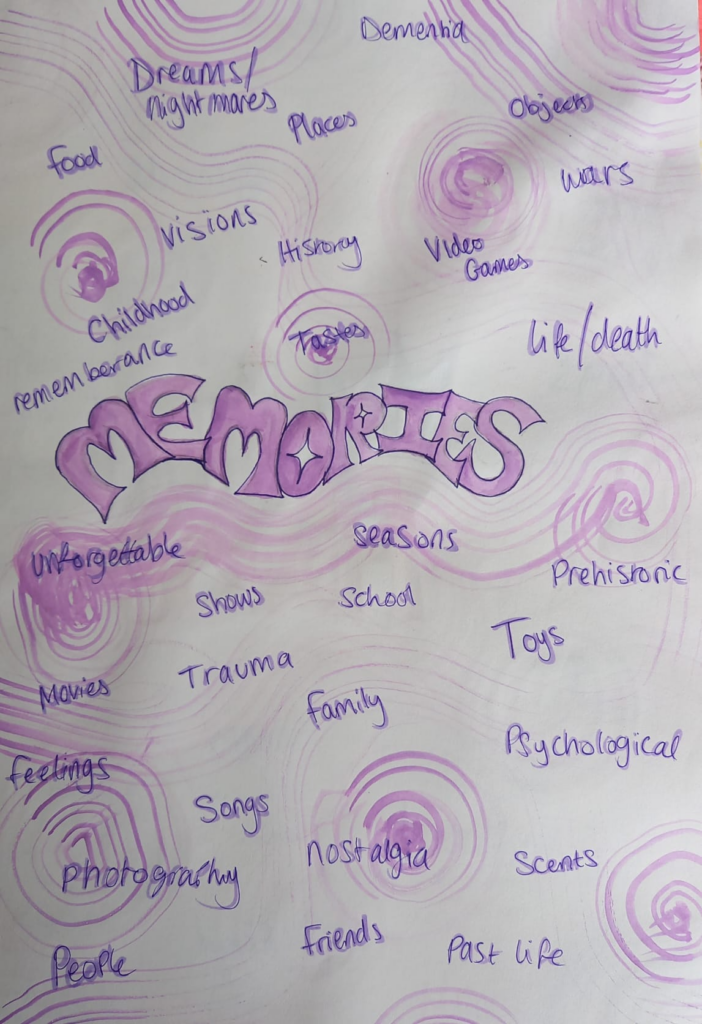 Dementia
Dreams/
nightmares
Places
Objects
food
wars
visions
History
Video
Games
Childhood
Tastes
life/death
rememberance
MEMORIES
unforgettable
seasons
Prehistoric
Shows
School
Toys
Trauma
Movies
family
Psychological
feelings
Songs
nostalgia
Scents
photography
friends
Past life
People